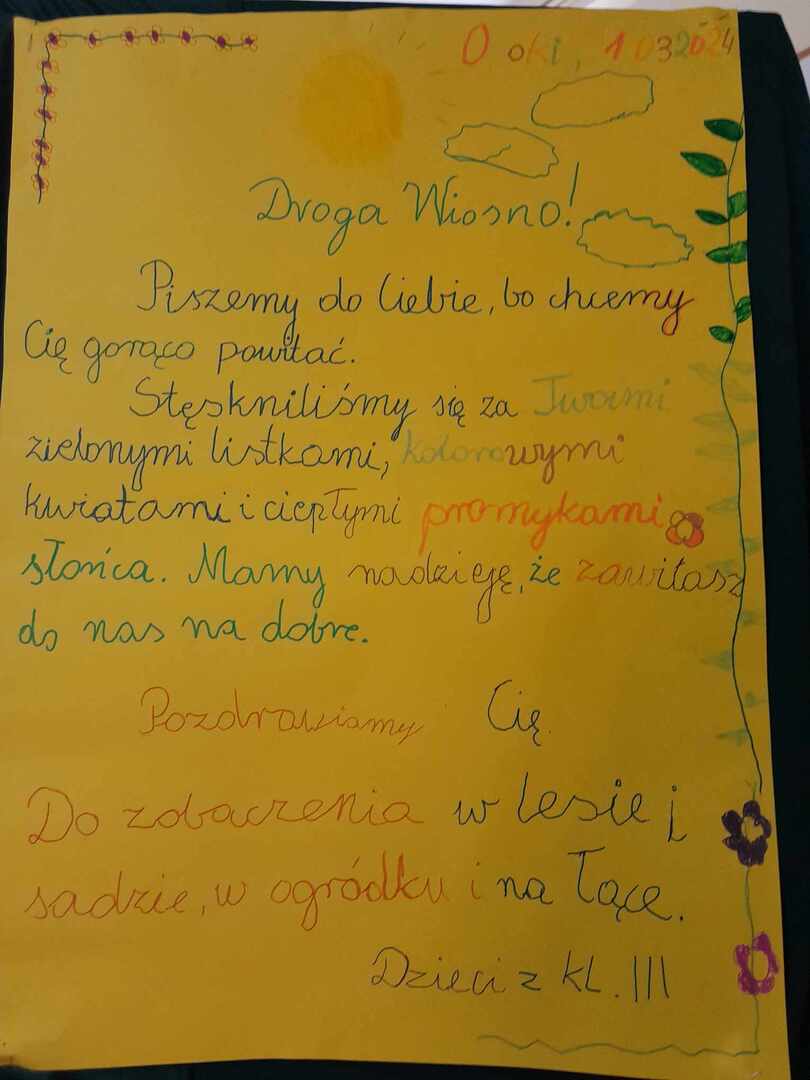 Droga Wiosno!
Piszemy do Ciebie, bo chcemy
Cię gorąco powitać.
Stęskniliśmy się za Twoimi
zielonymi listkami, kolorowymi
kwiatami i ciepłymi promykami
słońca. Mamy nadzieję, że zawitasz
do nas na dobre.
Pozdrawiamy Cię.
Do zobaczenia w lesie i
sadzie, w ogródku i na łące.
Dzieci z kl. III